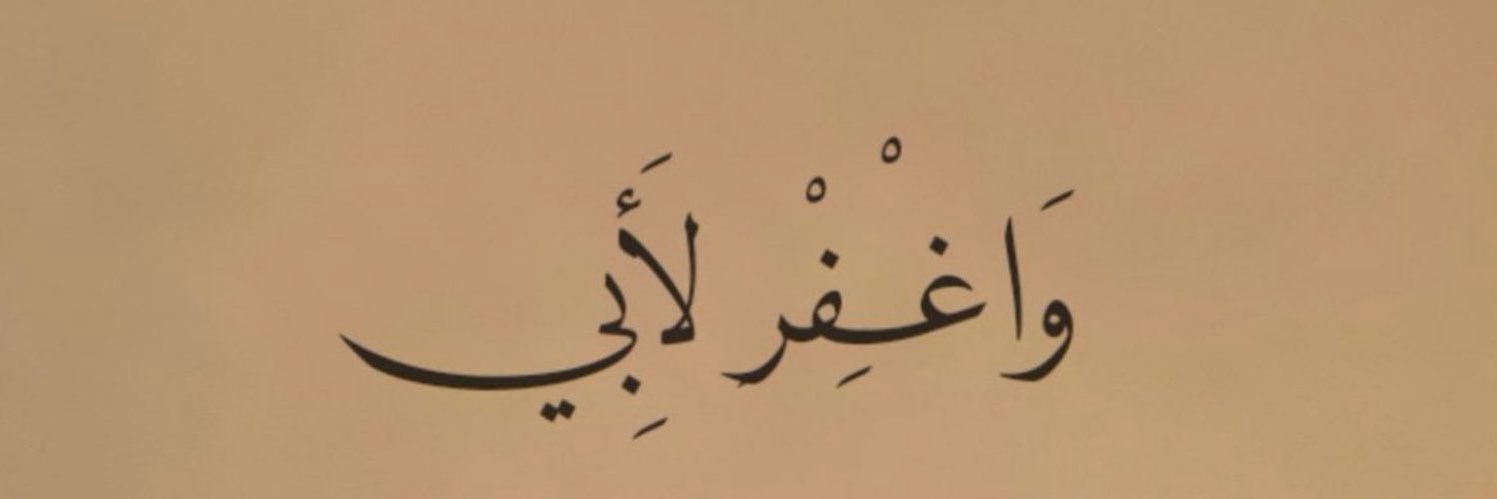 وَاغْفِرْ لأَبِي